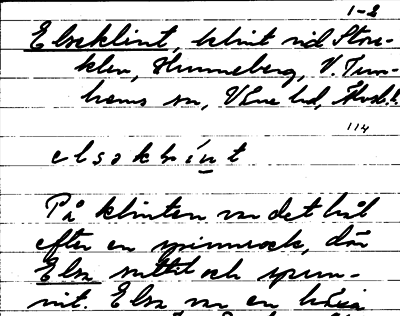 1-2
Elseklint, klint vid Stor-
klev, Hunneberg, V. Tun-
hems sn, Väne hd, Älvsb.l.
114
elsəkl i n t
På klinten var det hål
efter en spinnrock, där
Elsa suttit och spun-
nit. Elsa var en